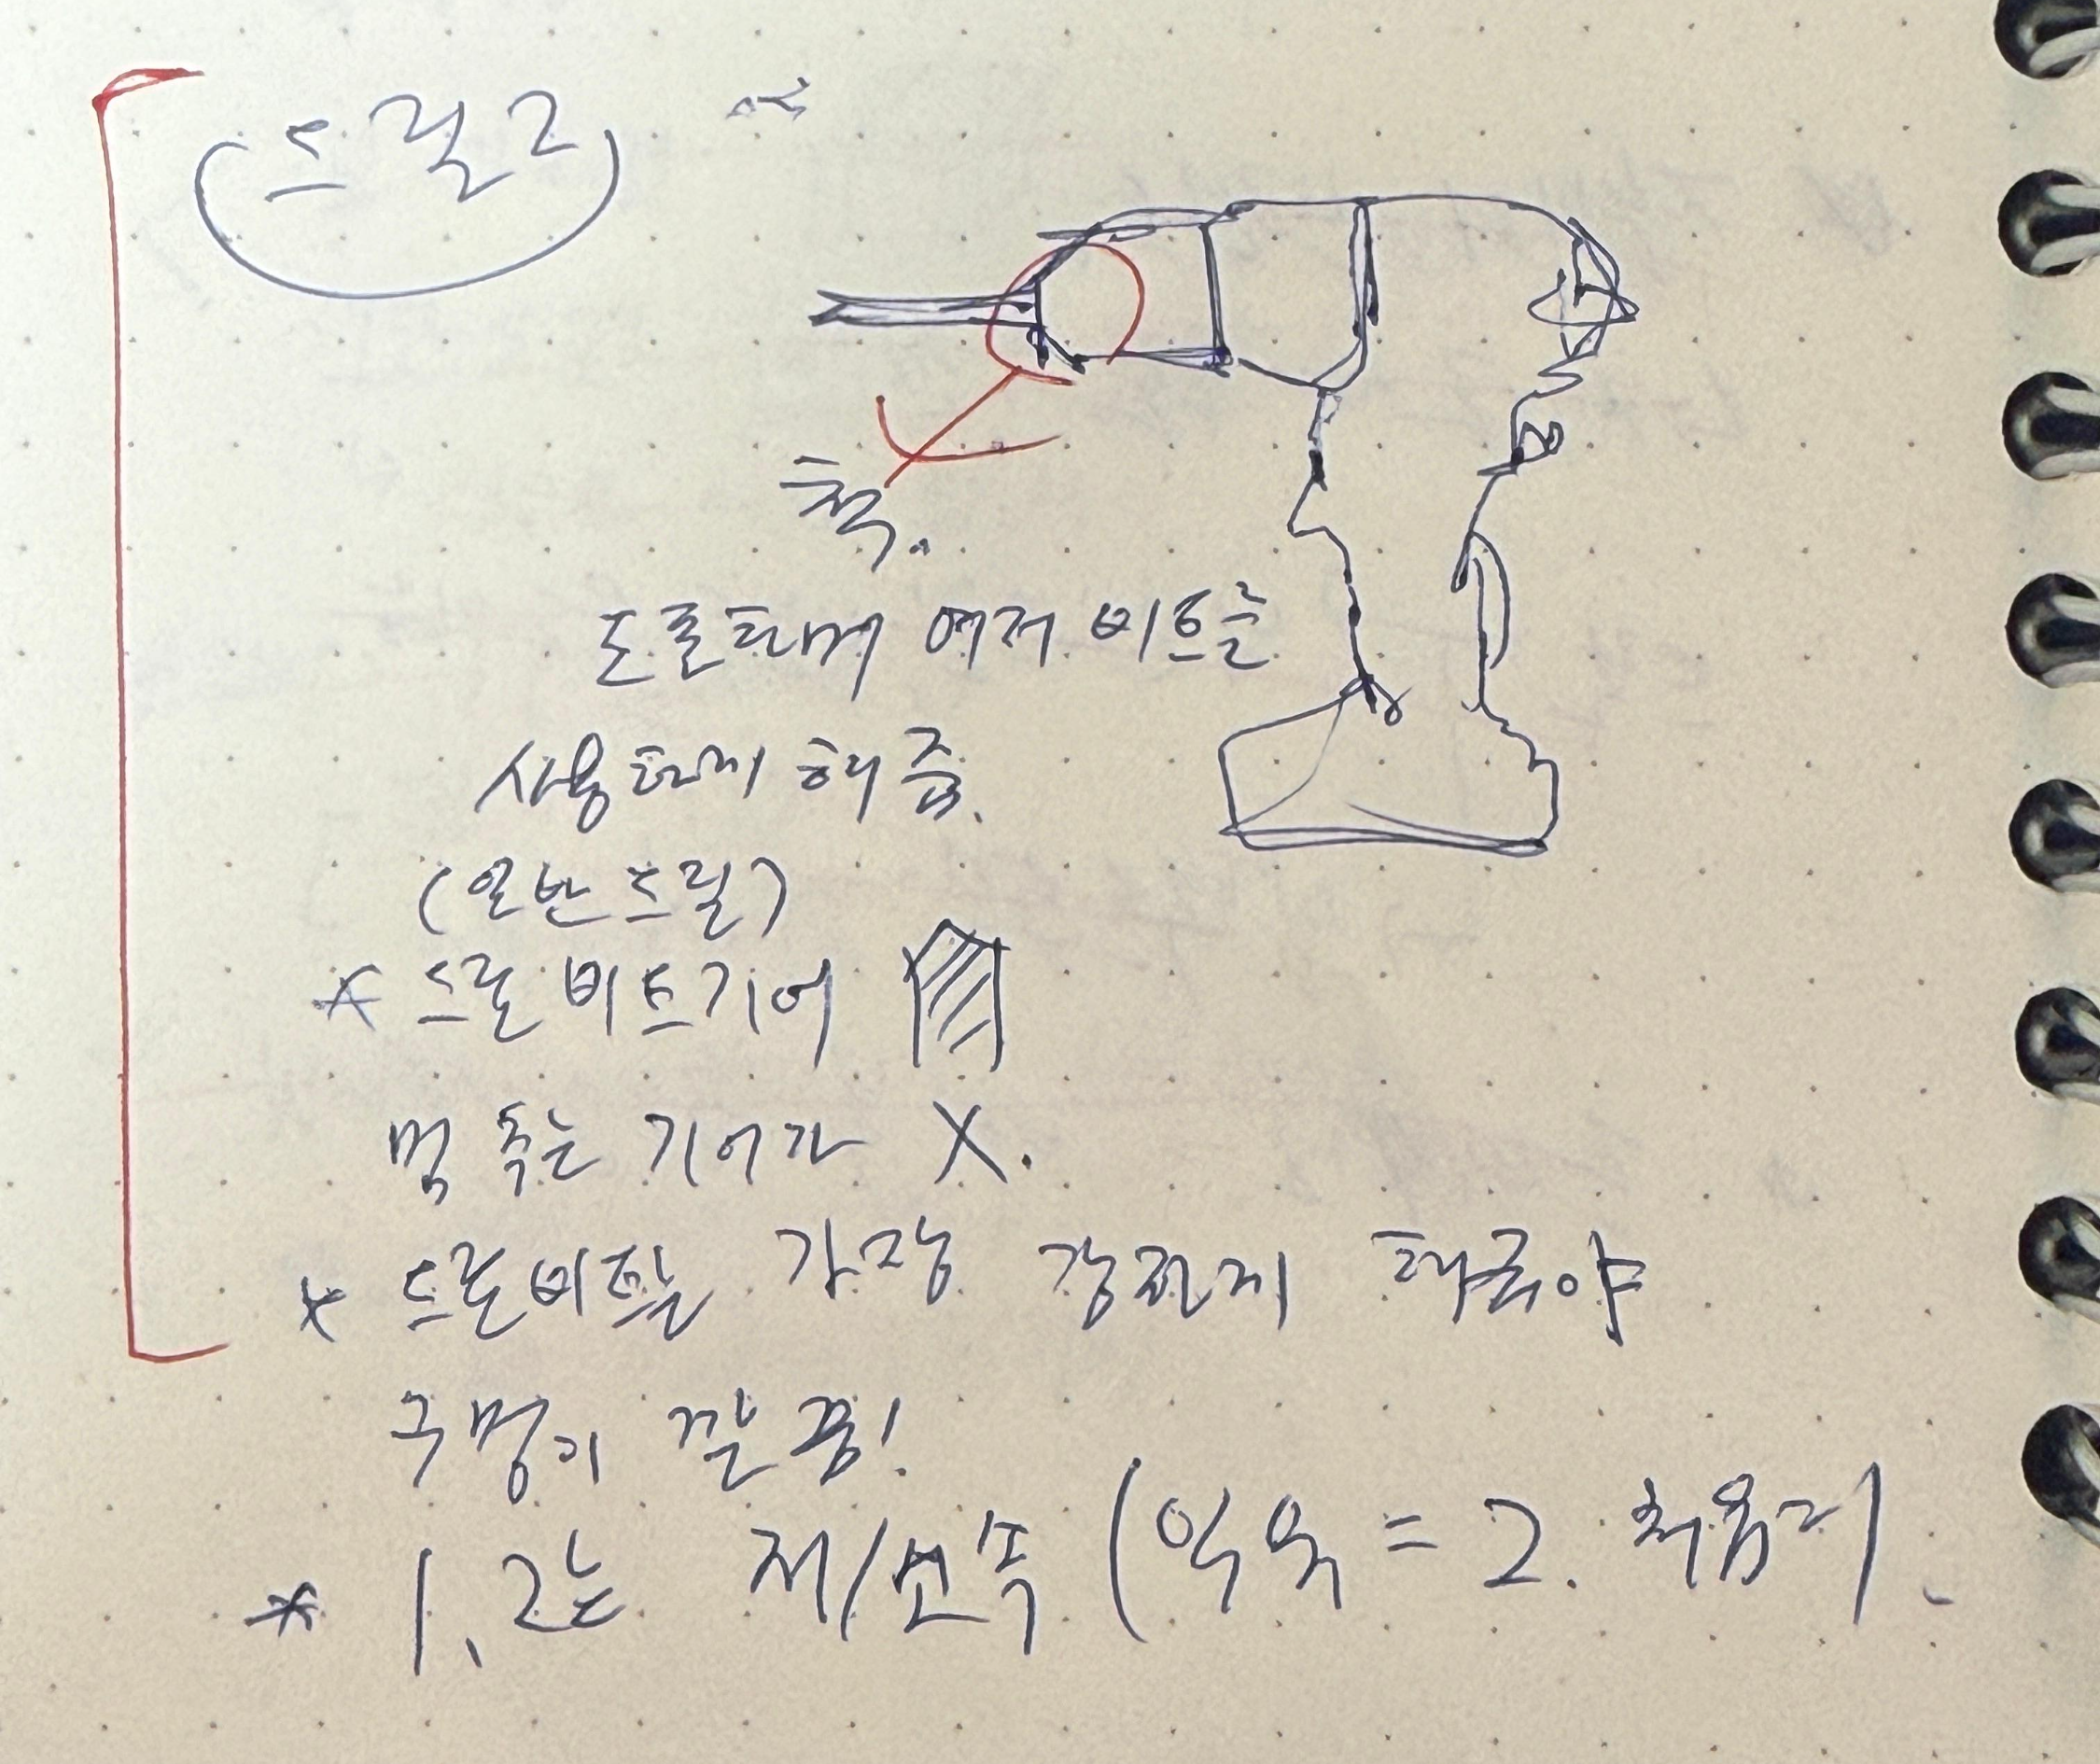 드릴2
척.
여러 비트를
사용하게 해줌.
(일반드릴)
* 드릴 비트기어
멈추는 기어가 X.
* 드릴비트를 가장 강하게 해줘야
구멍이 깔끔!
* 1, 2는 저/고속 (익숙 = 2. 처음 1).